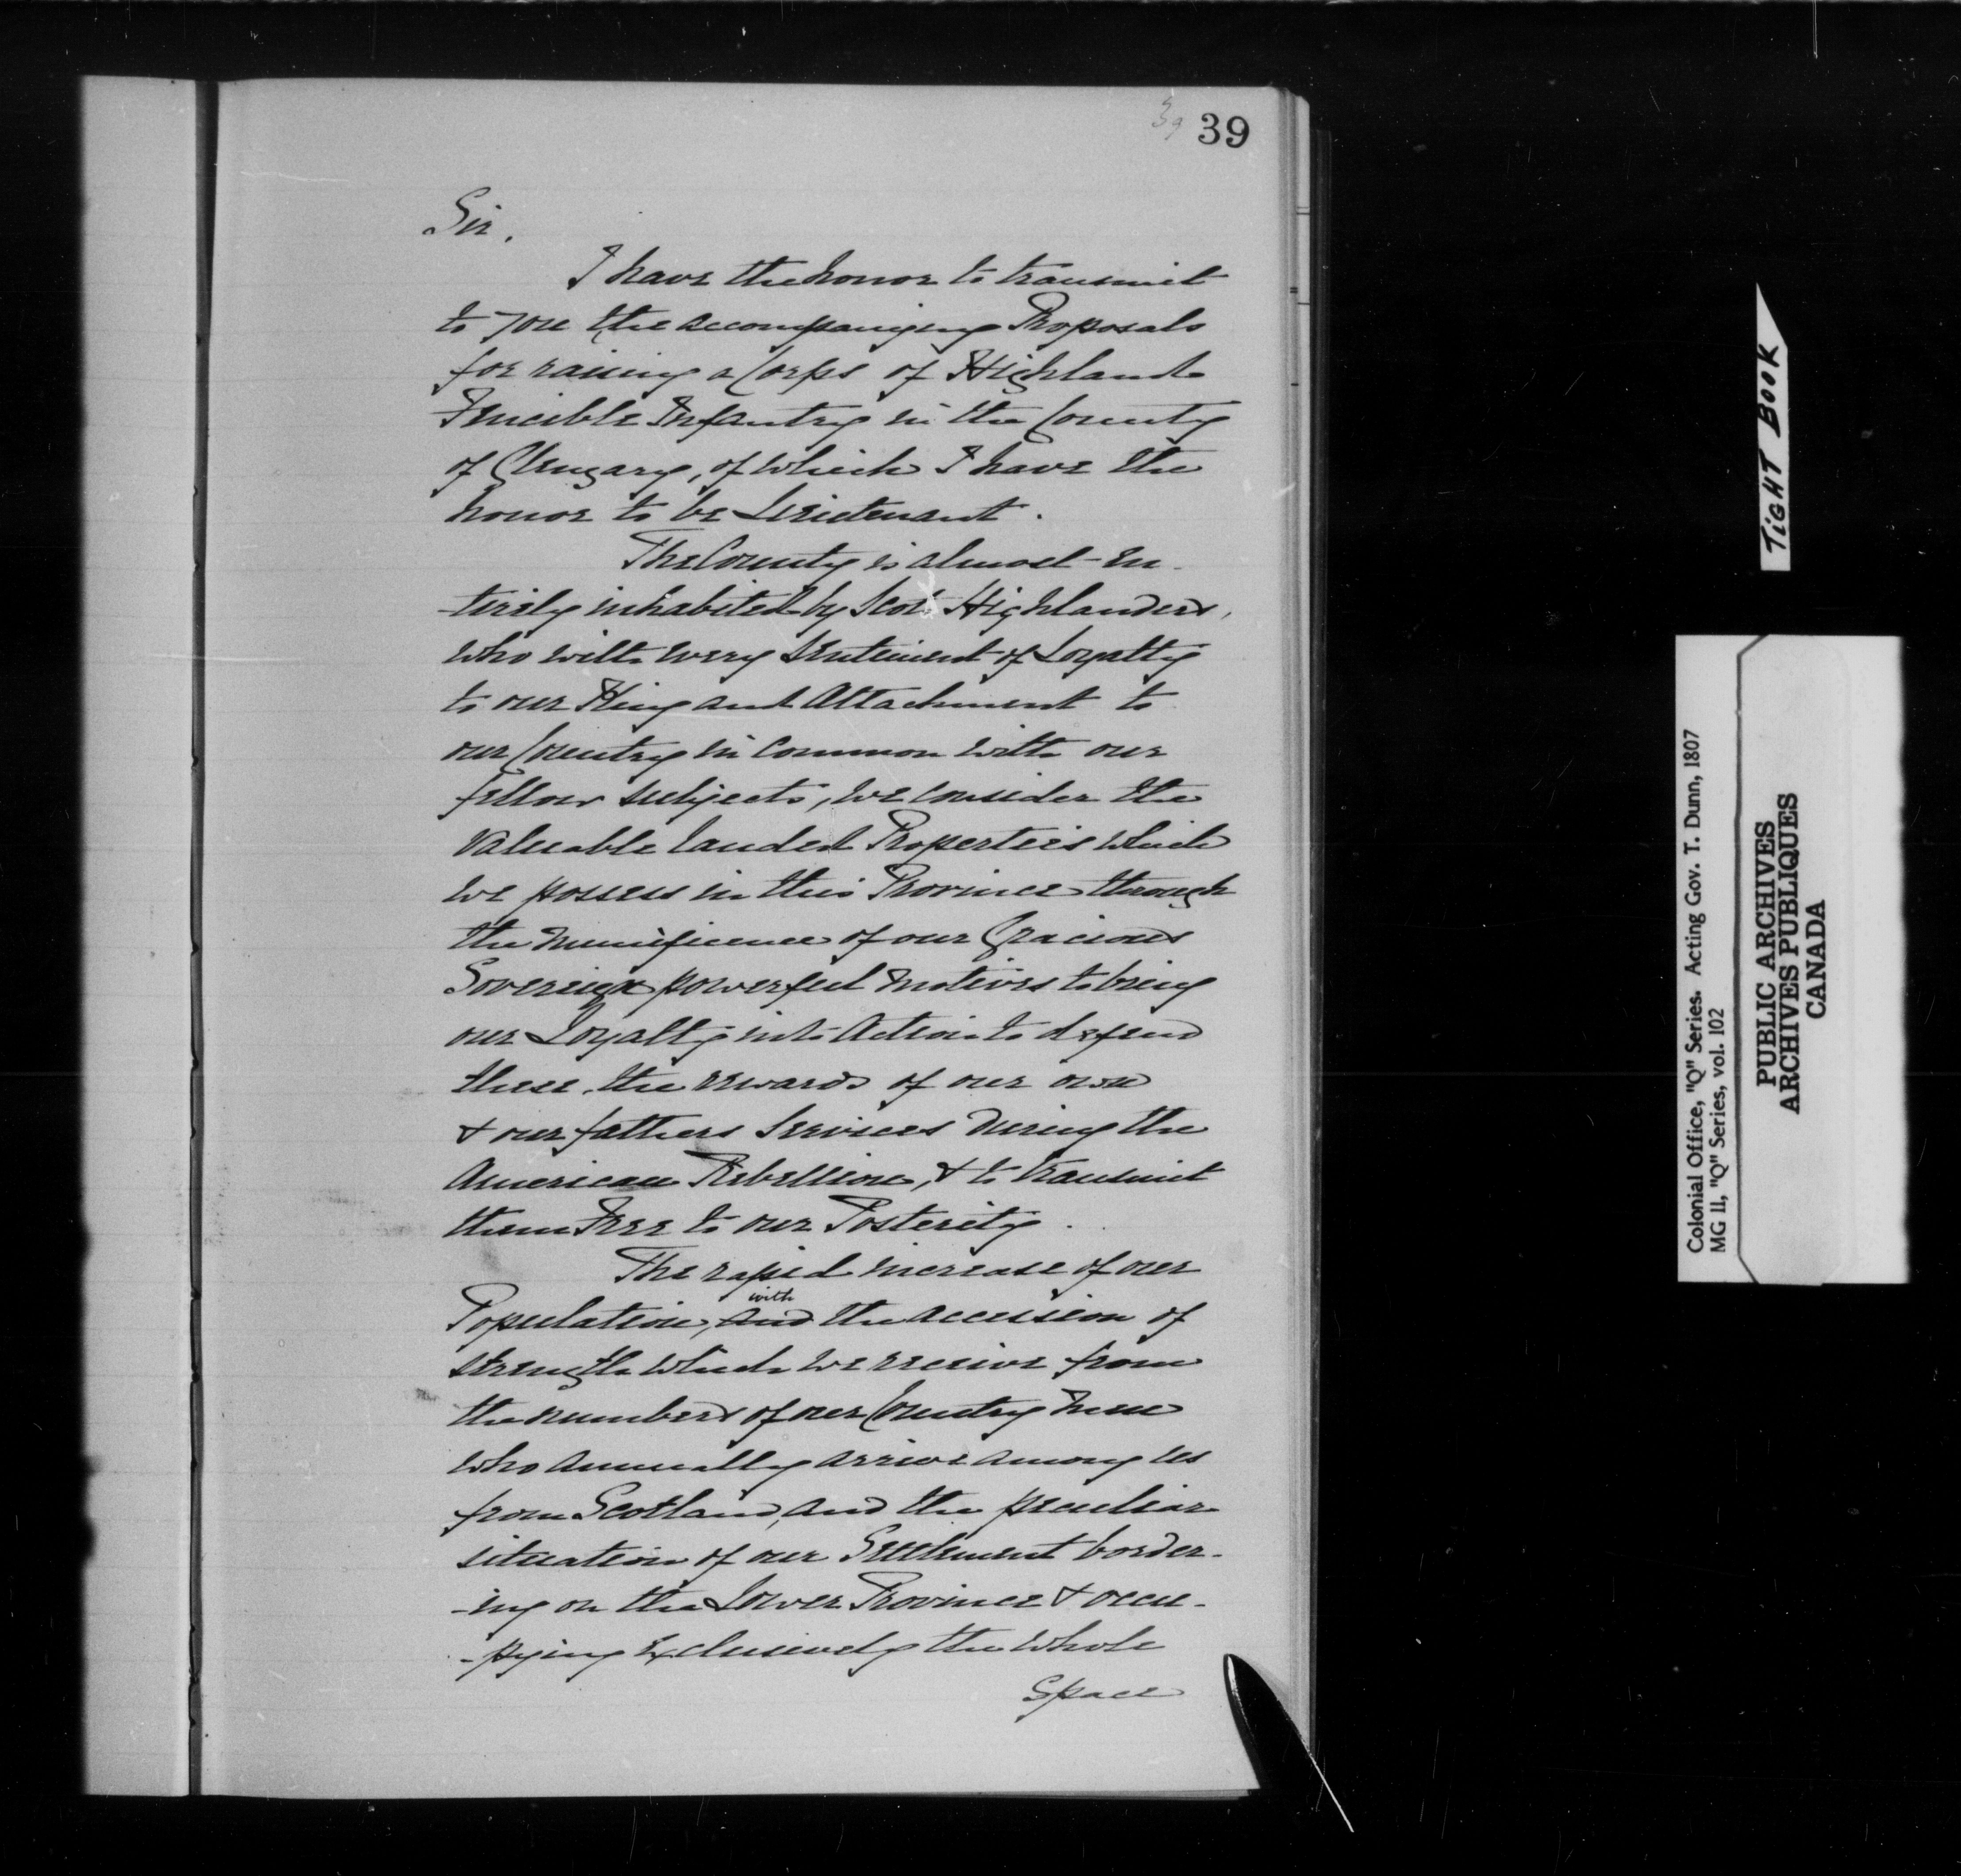 39 39
Sir,
I have the honor to transmit
to you the accompanying Proposals
for raising a Corps of Highland
Fencible Infantry in the County
of Glengary, of which I have the
honor to be Lieutenant.
The County is almost en-
-tirely inhabited by Scots Highlanders,
who with every sentiment of Loyalty
to our King and Attachment to
our Country in Common with our
fellow subjects, we consider the
valuable landed Properties which
we possess in this Province through
the munificence of our Gracious
Sovereign powerful motives to bring
our Loyalty into Action to defend
these, the rewards of our own
& our fathers Services during the
American Rebellion, & to transmit
them Free to our Posterity.
The rapid increase of our
with
Population, and the accession of
strength which we receive from
the numbers of our Country men
who annually arrive among us
from Scotland, and the peculiar
situation of our Settlement border-
-ing on the Lower Province & occu-
-pying exclusively the whole
Space
TIGHT BOOK
Colonial Office, "Q" Series. Acting Gov. T. Dunn, 1807
MG 11, "Q" Series, vol. 102
PUBLIC ARCHIVES
ARCHIVES PUBLIQUES
CANADA